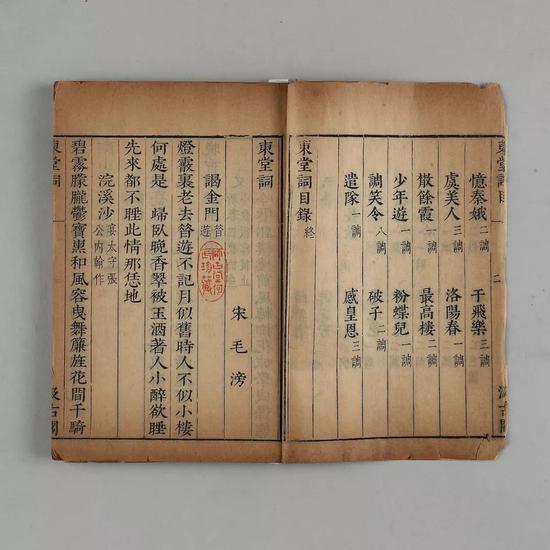 東堂詞目 二 汲古閣
憶秦娥二調 于飛樂三調
虞美人三調 洛陽春一調
散餘霞一調 最高樓二調
少年遊一調 粉蝶兒一調
調笑令八調 破子二調
遣隊一調 感皇恩三調
東堂詞目錄終
東堂詞
宋 毛滂
謁金門昔遊
燈裏老去昔遊不記月似舊時人不似小樓
何處是 歸臥晚香翠被玉酒著人小醉欲睡
先來都不睡此情那恁地
浣溪沙太守張公內翰作
碧霧朦朧鬱寶熏和風容曳舞簾旌花間千騎
東堂詞 汲古閣